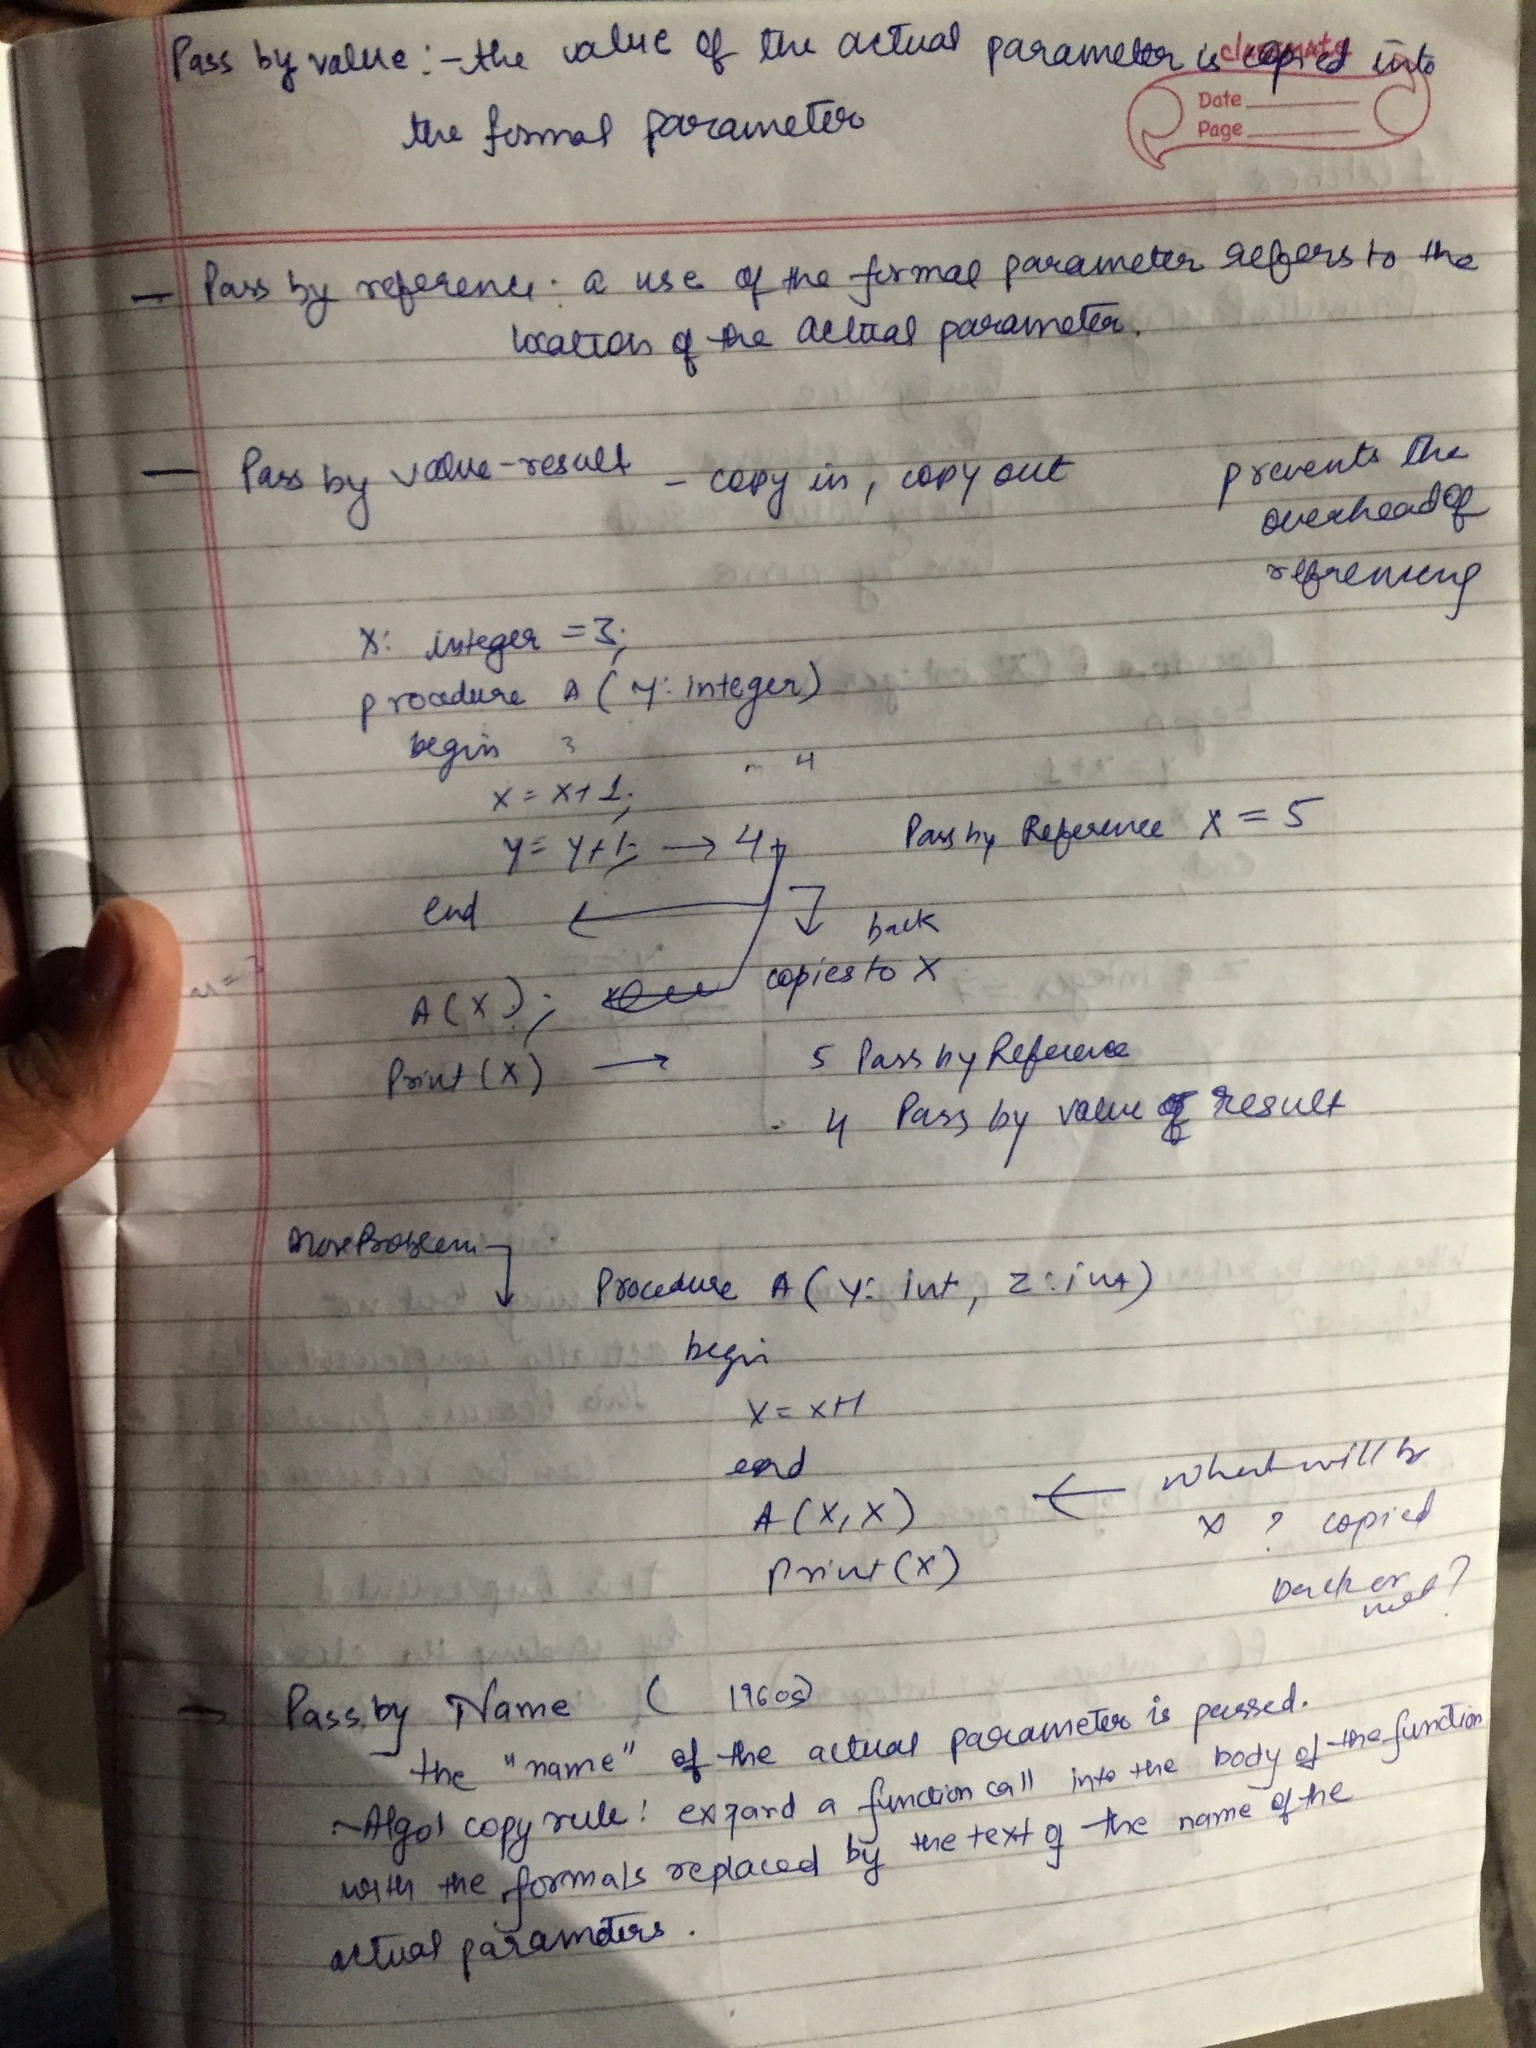 Pass by value :- the value of the actual parameter is copied into
classmate
Date
Page
the formal parameter
— Pass by reference : a use of the formal parameter refers to the
location of the actual parameter.
— Pass by value-result - copy in, copy out
prevents the
overhead of
refrencing
X: integer = 3;
procedure A ( Y: integer)
begin 3
4
x = x+1;
y = y+1; → 4
Pass by Reference X = 5
end
back
copies to X
A(X);
Print (X) → 5 Pass by Reference
4 Pass by value of result
More Problem
Procedure A ( Y: int, Z: int)
begin
X = X+1
end
A (X, X) ← what will be
x ? copied
back or
not?
Print (X)
— Pass by Name ( 1960s)
the "name" of the actual parameter is passed.
~Algol copy rule : expand a function call into the body of the function
with the formals replaced by the text of the name of the
actual parameters.